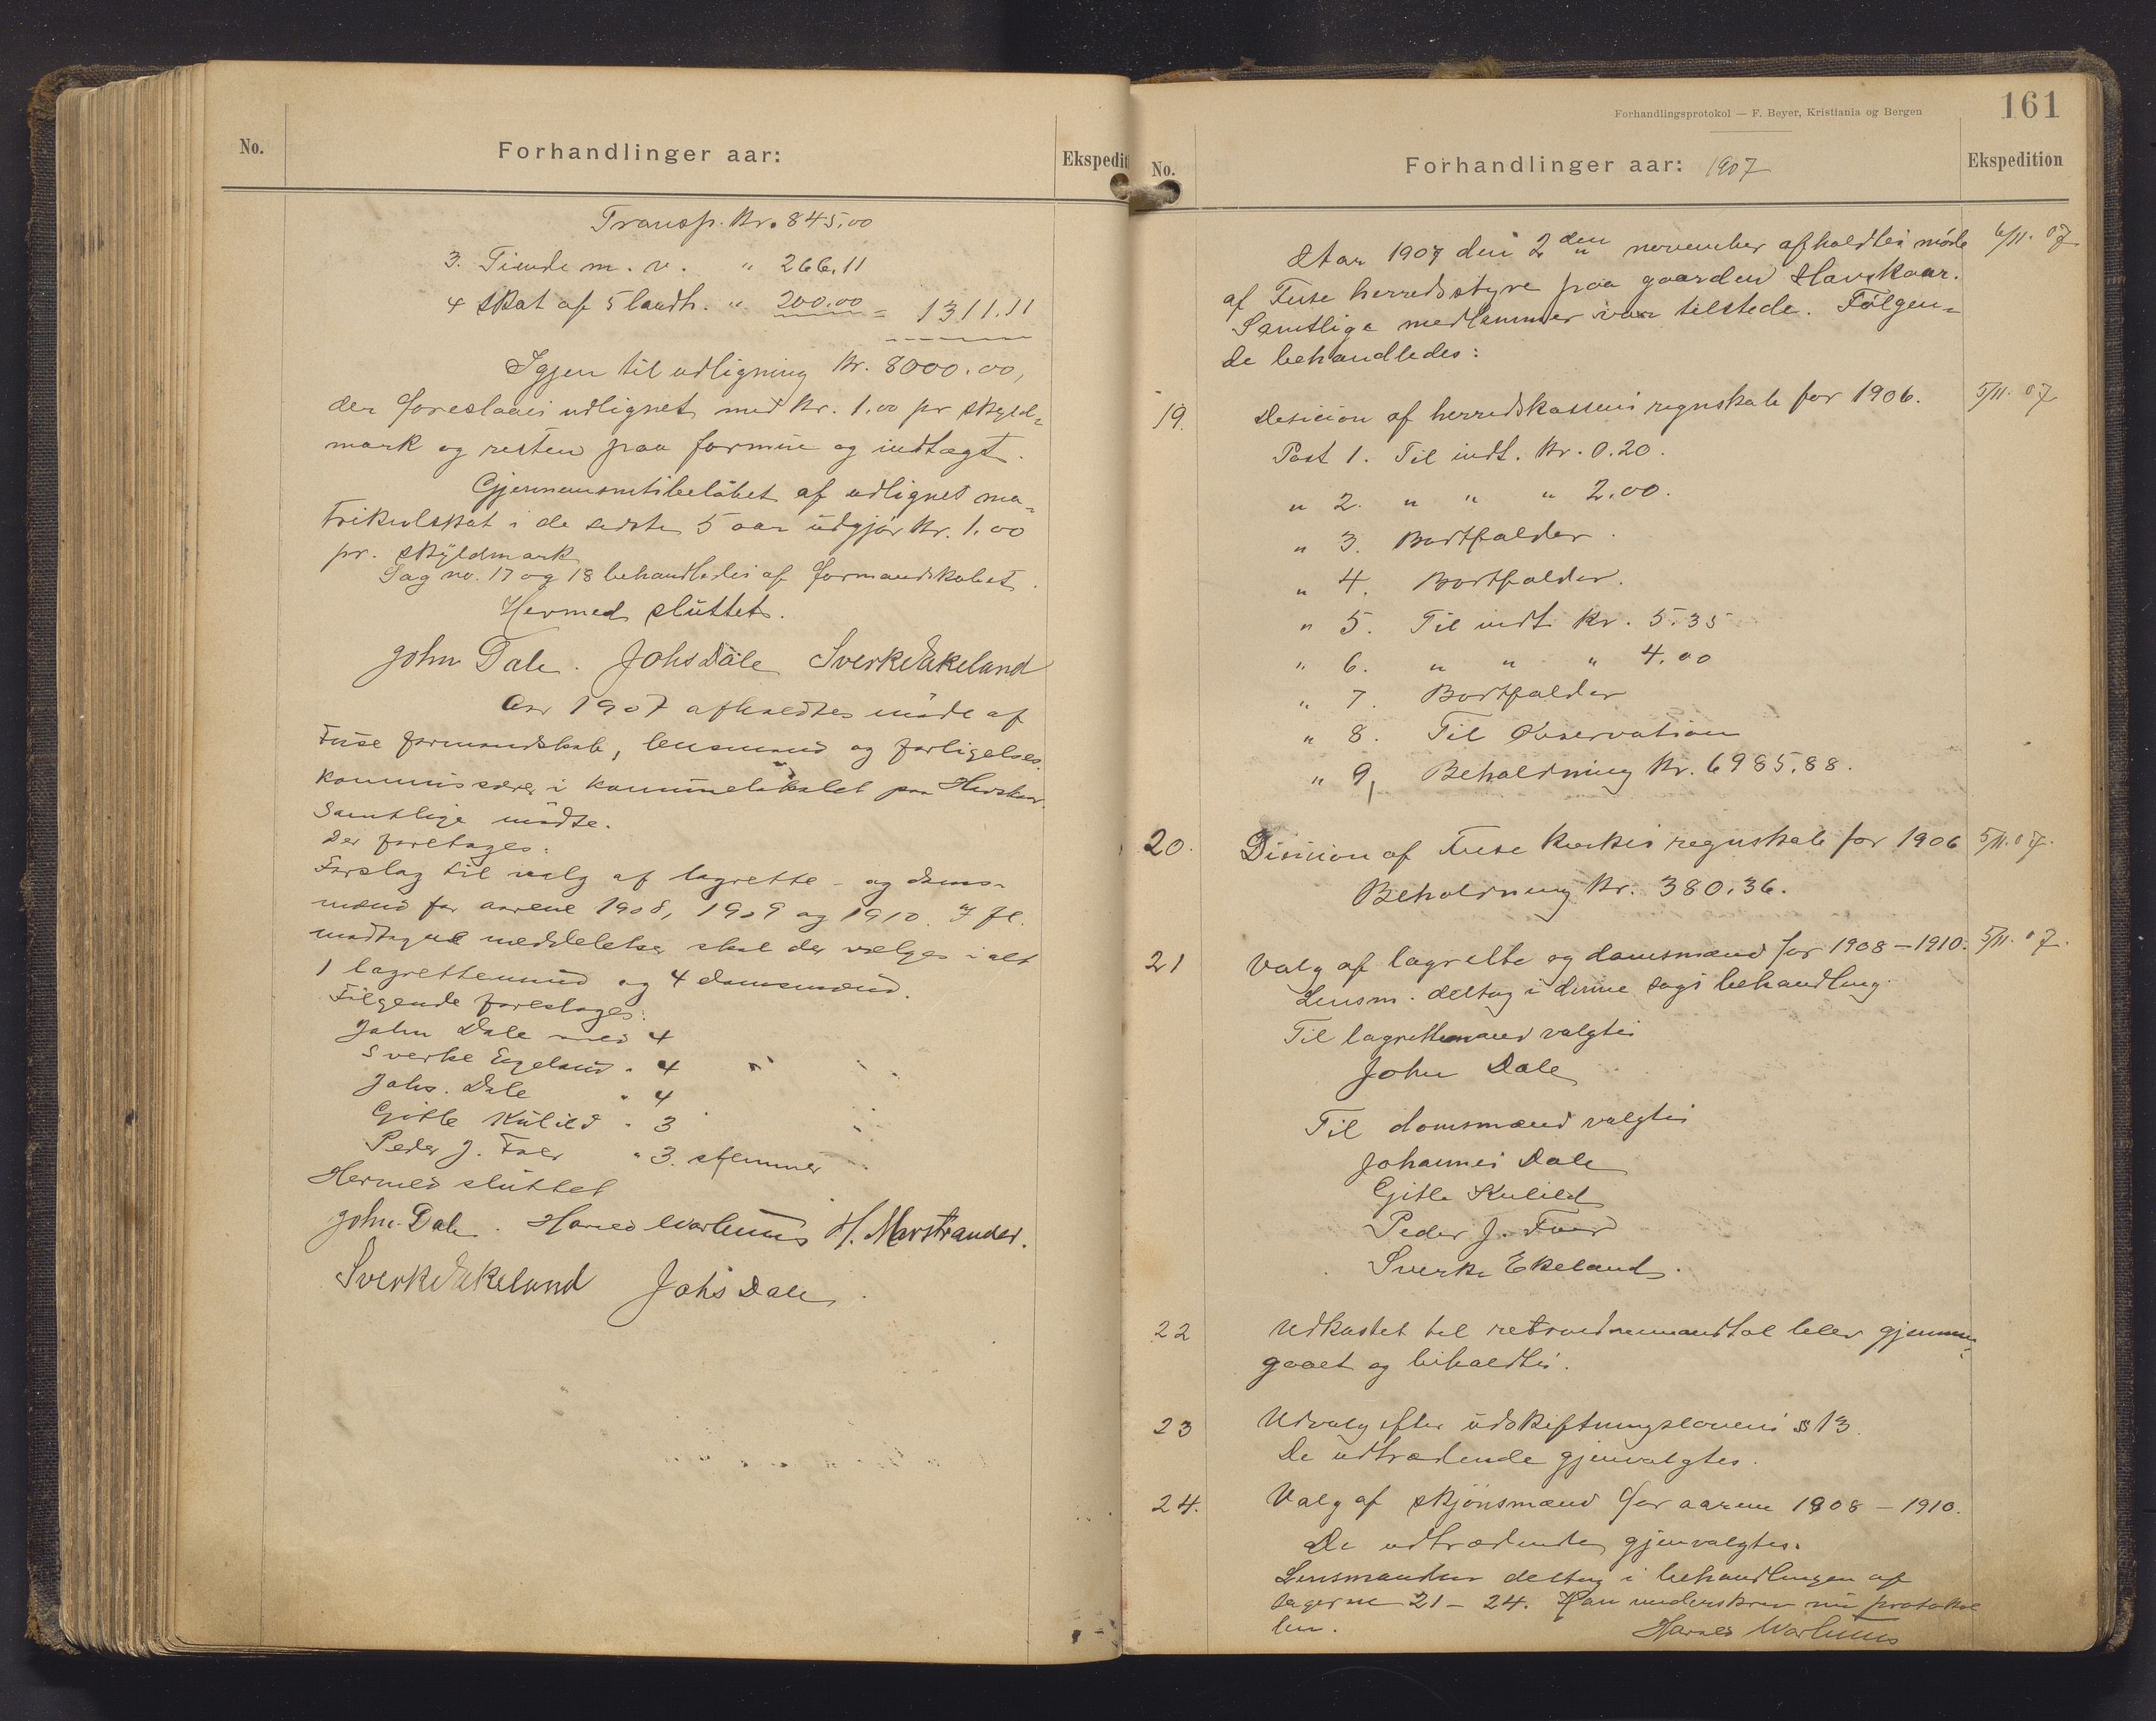 No.
Forhandlinger aar:
Ekspedit
Transp. Kr. 845,00
3. Tiende m. v. " 266,11
4 Skat af 5 landh. " 200,00 = 1311.11
Igjen til udligning Kr. 8000.00,
der foreslaaes udlignet med Kr. 1.00 pr skyld-
mark og resten paa formue og indtægt.
Gjennemsnitsbeløbet af udlignet ma-
trikulskat i de sidste 5 aar udgjør Kr. 1.00
pr. skyldmark
Sag no. 17 og 18 behandledes af formandskabet.
Hermed sluttet.
John Dale. Johs Dale Sverke Ekeland
Aar 1907 afholdtes møde af
Fuse formandskab, lensmand og forligelses-
kommissærer i kommunelokalet paa Havskor.
Samtlige mødte.
Der foretages:
Forslag til valg af lagrette- og doms-
mænd for aarene 1908, 1909 og 1910. If fl.
modtagne meddelelse skal der vælges i alt
1 lagrettemand og 4 domsmænd.
Følgende foreslages:
John Dale med 4
Sverke Egeland " 4
Johs. Dale " 4
Gitle Kulild " 3
Peder J. Foer " 3. stemmer
Hermed sluttet
John Dale. Hannes Warhuus H. Marstrander.
Sverke Ekeland Johs Dale
Forhandlingsprotokol — F. Beyer, Kristiania og Bergen
161
No.
Forhandlinger aar: 1907
Ekspedition
Aar 1907 den 2den november afholdtes møde 6/11. 07
af Fuse herredsstyre paa gaarden Havskaar.
Samtlige medlemmer var tilstede. Følgen-
de behandledes:
19. Desicion af herredskassens regnskab for 1906. 5/11. 07
Post 1. Til indt. Kr. 0.20.
" 2. " " " 2.00.
" 3. Bortfalder.
" 4. Bortfalder.
" 5. Til indt. Kr. 5.35
" 6. " " " 4.00
" 7. Bortfalder
" 8. Til Observation
" 9, Beholdning Kr. 6985,88.
20. Disicion af Fuse kirkes regnskab for 1906 5/11. 07.
Beholdning Kr. 380.36.
21 Valg af lagrette og domsmænd for 1908-1910. 5/11. 07.
Lensm. deltog i denne sags behandling.
Til lagrettemænd valgtes
John Dale
Til domsmænd valgtes
Johannes Dale
Gitle Kulild
Peder J. Foer
Sverke Ekeland.
22 Udkastet til retsvidnemandtal blev gjennem-
gaaet og beholdtes.
23 Udvalg efter udskiftningslovens § 13.
De udtrædende gjenvalgtes.
24. Valg af skjønsmænd for aarene 1908-1910.
De udtrædende gjenvalgtes.
Lensmanden deltog i behandlingen af
sagerne 21-24. Han underskrev nu protokol
len. Hannes Warhuus